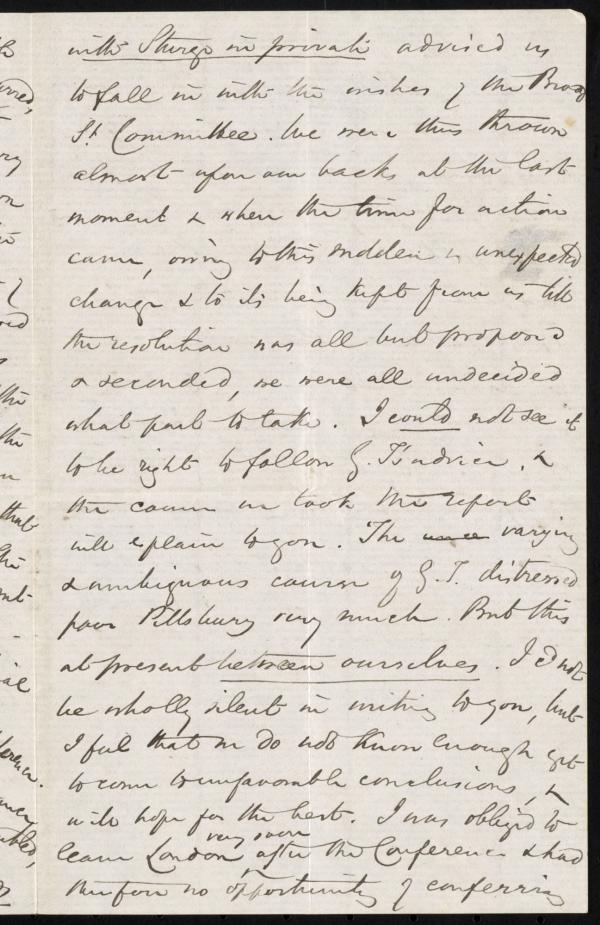 with Sturge in private advised us
to fall in with the wishes of the Broad
St. Committee. We were thus thrown
almost upon our backs at the last
moment & when the time for action
came, owing to this sudden & unexpected
change & to its being kept from us till
the resolution was all but proposed
& seconded, we were all undecided
what part to take. I could not see it
to be right to follow G. T.'s advice, &
the course we took the report
will explain to you. The varying
& ambiguous course of G. T. distressed
poor Pillsbury very much. But this
at present between ourselves. I c'd not
be wholly silent in writing to you, but
I feel that we do not know enough yet
to come to unfavorable conclusions, &
will hope for the best. I was obliged to
leave London very soon after the Conference & had
therefore no opportunity of conferring